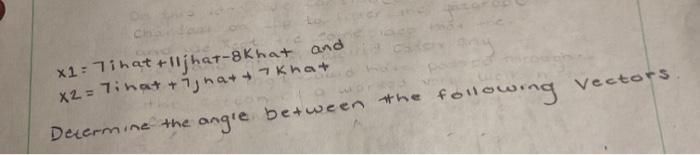 x1 = 7ihat + 11jhat - 8Khat and
x2 = 7ihat + 7jhat + 7Khat
Determine the angle between the following vectors.